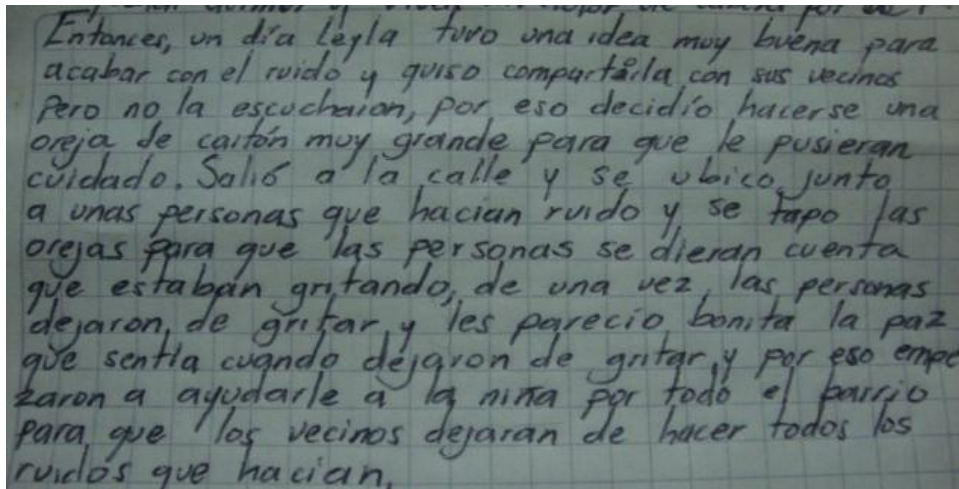 Entonces, un día Leyla tuvo una idea muy buena para
acabar con el ruido y quiso compartirla con sus vecinos
Pero no la escucharon, por eso decidío hacerse una
oreja de cartón muy grande para que le pusieran
cuidado. Salió a la calle y se ubico, junto
a unas personas que hacian ruido y se tapo las
orejas para que las personas se dieran cuenta
que estaban gritando, de una vez, las personas
dejaron, de gritar, y les parecio, bonita la paz
que sentía cuando dejaron de gritar, y por eso empe
zaron a ayudarle a la niña por todo el barrio
para que los vecinos dejaran de hacer todos los
ruidos que hacian.